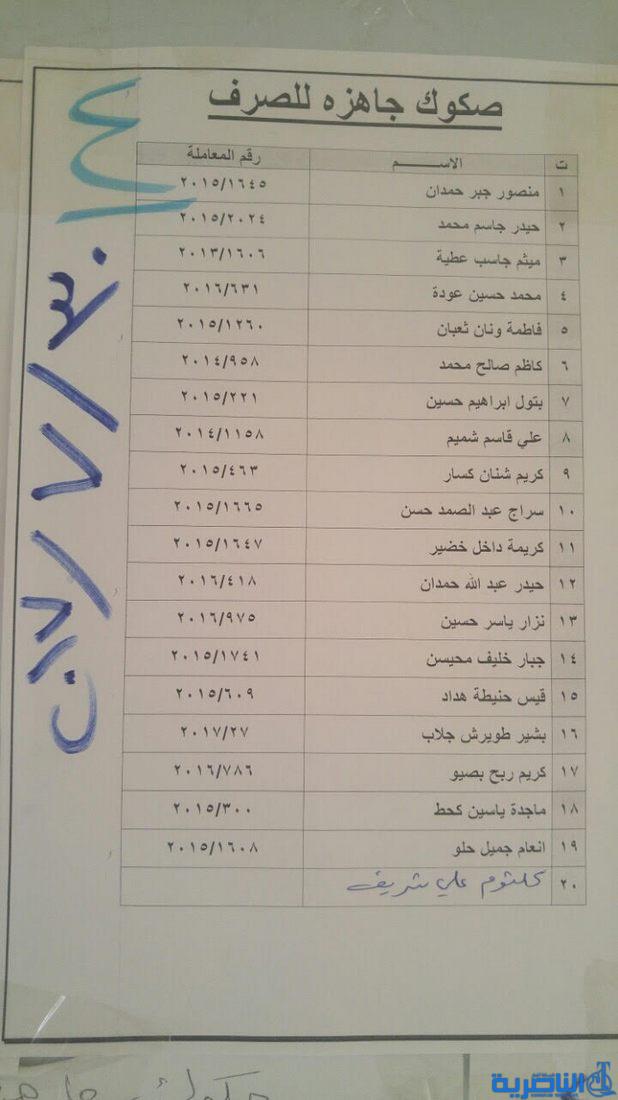 صكوك جاهزه للصرف
ت الاســـــم رقم المعاملة
١ منصور جبر حمدان ٢٠١٥/١٦٤٥
٢ حيدر جاسم محمد ٢٠١٥/٢٠٢٤
٣ ميثم جاسب عطية ٢٠١٣/١٦٠٦
٤ محمد حسين عودة ٢٠١٦/٦٣١
٥ فاطمة ونان ثعبان ٢٠١٥/١٢٦٠
٦ كاظم صالح محمد ٢٠١٤/٩٥٨
٧ بتول ابراهيم حسين ٢٠١٥/٢٢١
٨ علي قاسم شميم ٢٠١٤/١١٥٨
٩ كريم شنان كسار ٢٠١٥/٤٦٣
١٠ سراج عبد الصمد حسن ٢٠١٥/١٦٦٥
١١ كريمة داخل خضير ٢٠١٥/١٦٤٧
١٢ حيدر عبد الله حمدان ٢٠١٦/٤١٨
١٣ نزار ياسر حسين ٢٠١٦/٩٧٥
١٤ جبار خليف محيسن ٢٠١٥/١٧٤١
١٥ قيس حنيطة هداد ٢٠١٥/٦٠٩
١٦ بشير طويرش جلاب ٢٠١٧/٢٧
١٧ كريم ربح بصيو ٢٠١٦/٧٨٦
١٨ ماجدة ياسين كحط ٢٠١٥/٣٠٠
١٩ انعام جميل حلو ٢٠١٥/١٦٠٨
٢٠ كلثوم علي شريف
١٤
٢٠١٧/٧/٣٠
الناصرية